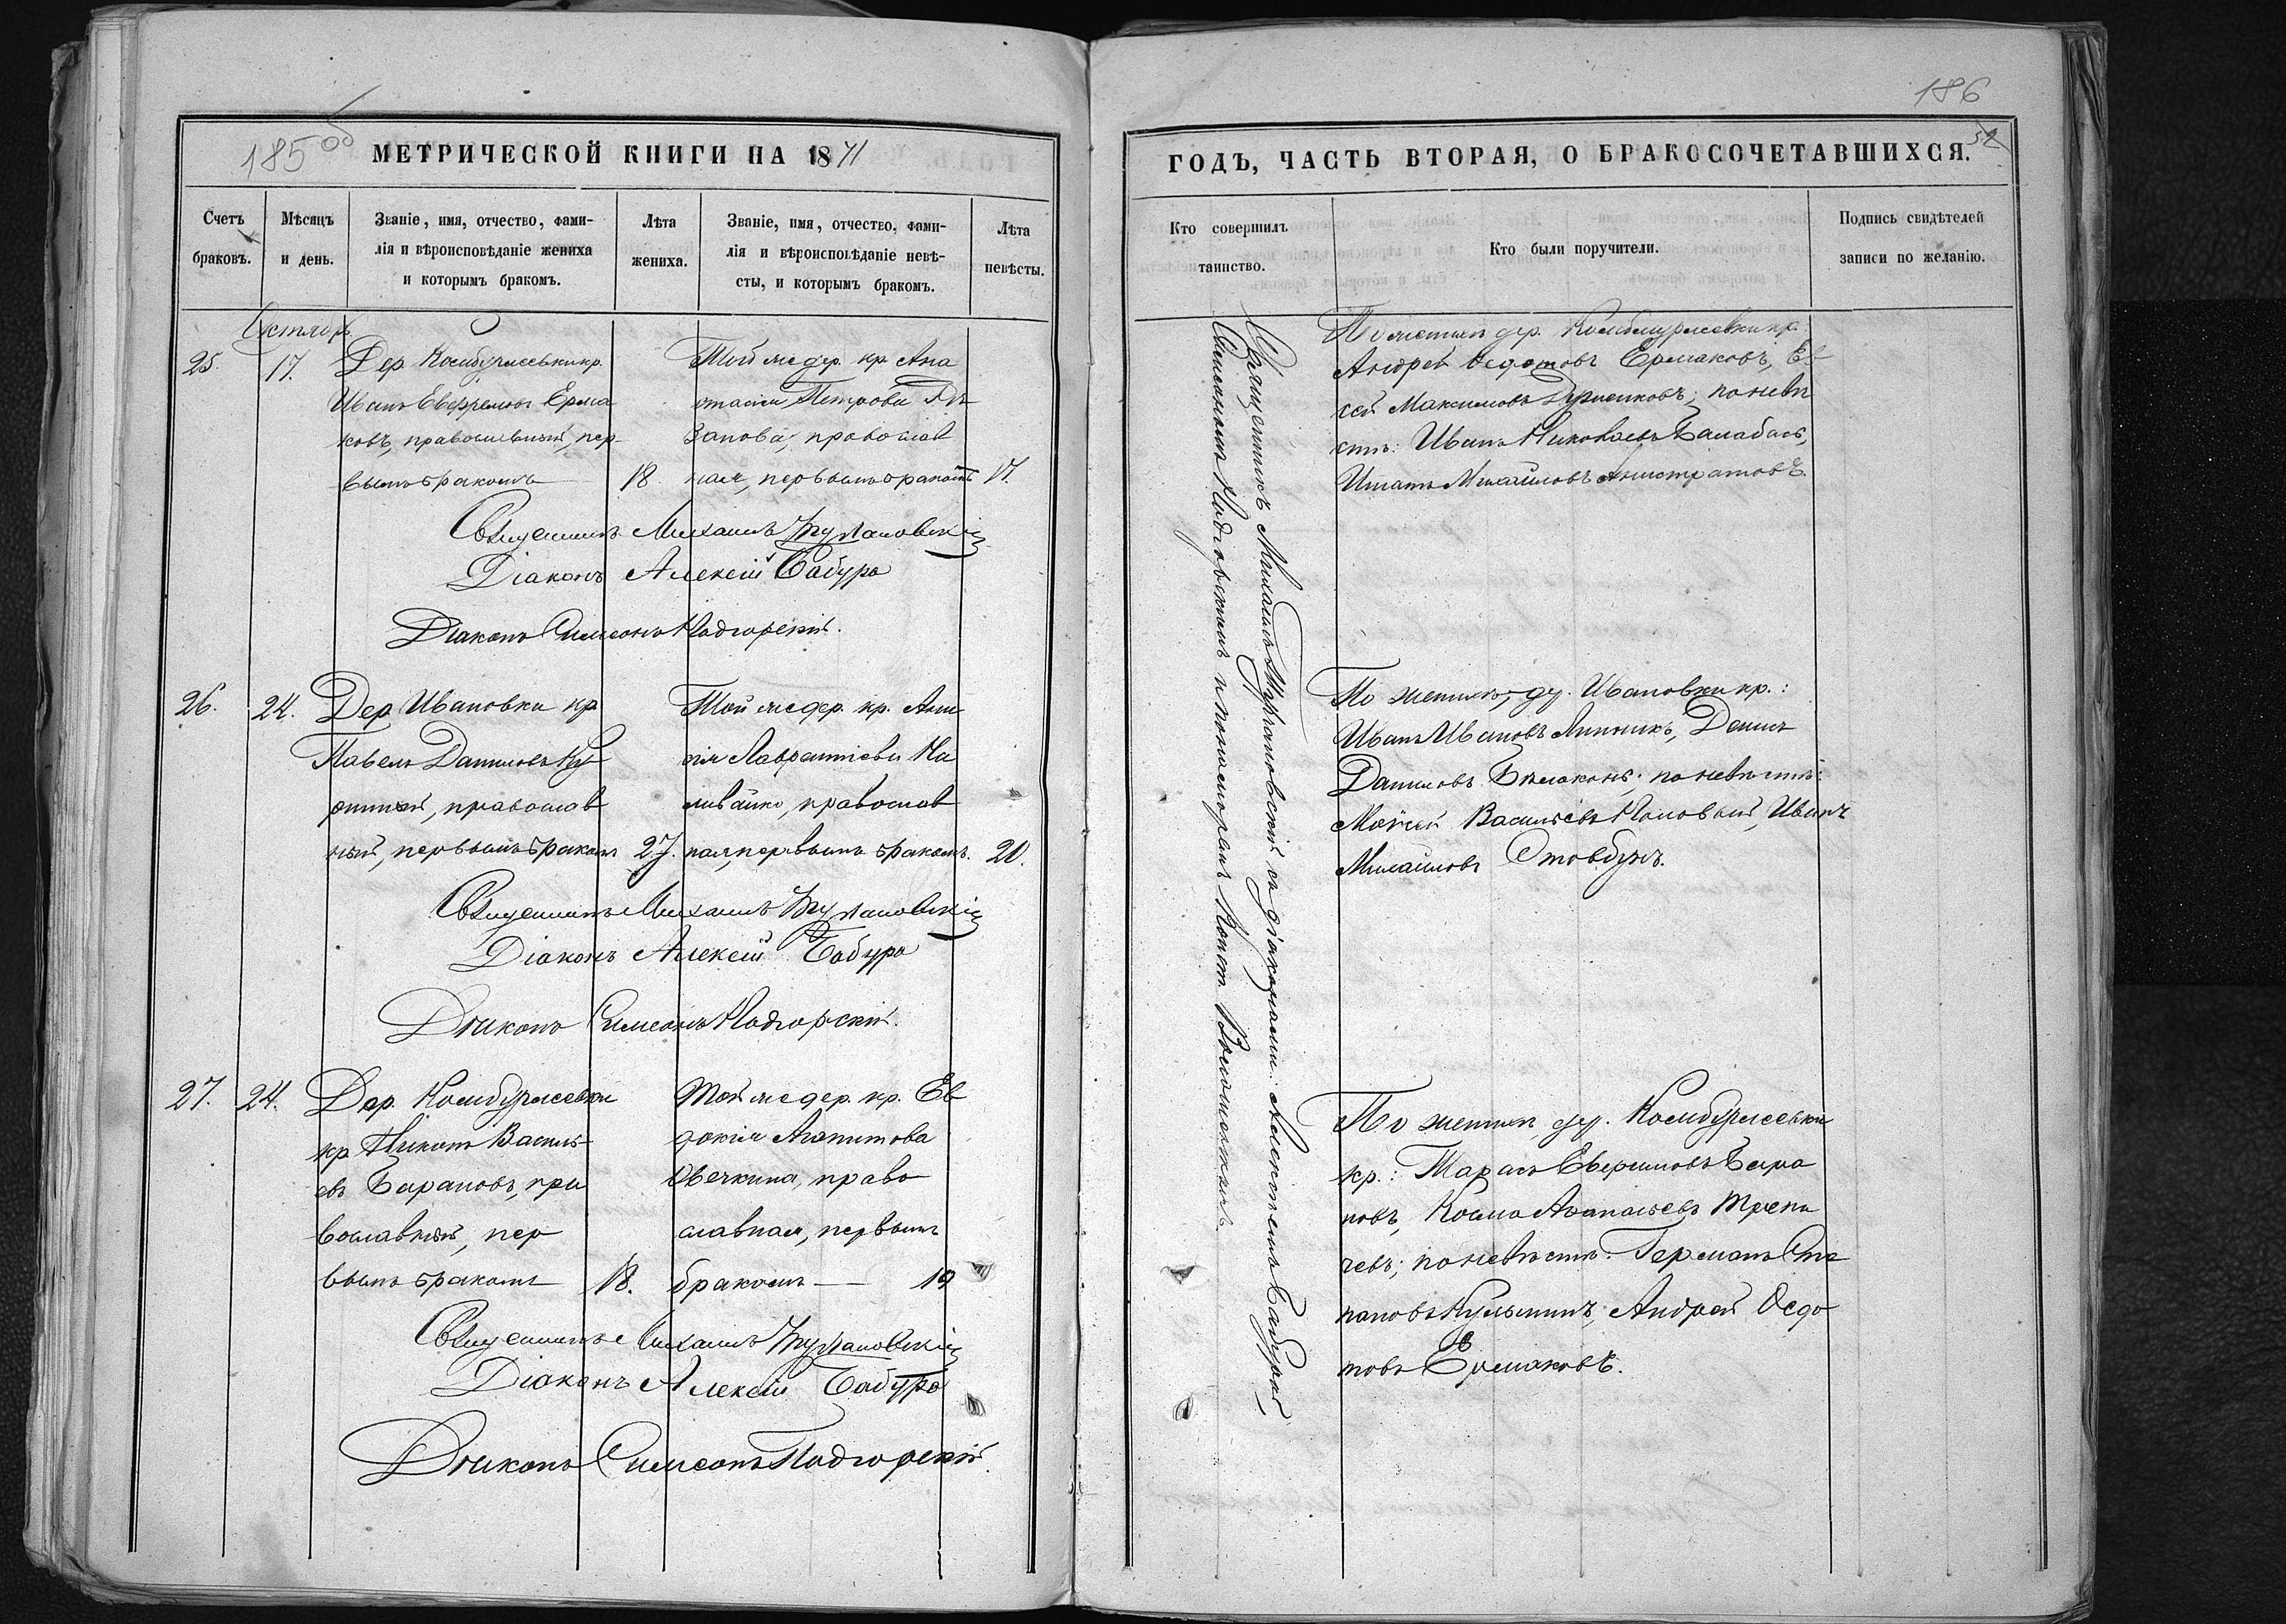 185 об
МЕТРИЧЕСКОЙ КНИГИ НА 1871
Счетъ браковъ.
Мѣсяцъ и день.
Званіе, имя, отчество, фами-
лія и вѣроисповѣданіе жениха
и которымъ бракомъ.
Лѣта жениха.
Званіе, имя, отчество, фами-
лія и вѣроисповѣданіе невѣ-
сты, и которымъ бракомъ.
Лѣта невѣсты.
Октябрь
25. 17.
Дер. Комбурлеевки кр.
Иванъ Ефремовъ Ерма
ковъ, православный, пер
вымъ бракомъ
18.
Той же дер. кр. Ана
стасія Петрова
занова, православ
ная, первымъ бракомъ
17.
Священникъ Михаилъ
Діаконъ Алексій Бабура
Діаконъ Симеонъ Подгорскій.
26. 24.
Дер. Ивановки кр
Павелъ Даниловъ
православ
ный, первымъ бракомъ
27.
Той же дер. кр.
Лаврентіева На
ливайко, православ
ная, первымъ бракомъ.
20.
Священникъ Михаилъ
Діаконъ Алексій Бабура
Діаконъ Симеонъ Подгорскій.
27. 24.
Дер. Комбурлеевки
кр Никита Василь
евъ Барановъ, пра
вославный, пер
вымъ бракомъ
18.
Той же дер. кр. Ев
докія Агапитова
Овечкина, право
славная, первымъ
бракомъ
19
Священникъ Михаилъ
Діаконъ Алексій Бабура
Діаконъ Симеонъ Подгорскій.
186
52
ГОДЪ, ЧАСТЬ ВТОРАЯ, О БРАКОСОЧЕТАВШИХСЯ.
Кто совершилъ таинство.
Кто были поручители.
Подпись свидѣтелей
записи по желанію.
Священникъ Михаилъ съ діаконами: Алексѣемъ Бабурой,
Симеономъ Подгорскимъ и пономаремъ Конст.
По женихѣ дер. Комбурлеевки кр.
Андрей Федотовъ Ермаковъ, Ев
сей Максимовъ по невѣ
стѣ: Иванъ Николаевъ Балабасъ,
Игнатъ Михайловъ Анистратовъ.
По женихѣ, дер. Ивановки кр.:
Иванъ Ивановъ Линникъ, Денисъ
Даниловъ по невѣстѣ:
Моисей Васильевъ Иванъ
Михайловъ Стовбунъ.
По женихѣ дер. Комбурлеевки
кр.: Тарасъ Бара
новъ, Косма Аѳанасьевъ
чевъ; по невѣстѣ: Германъ Сте
пановъ Андрей Ѳедо
товъ Ермаковъ.